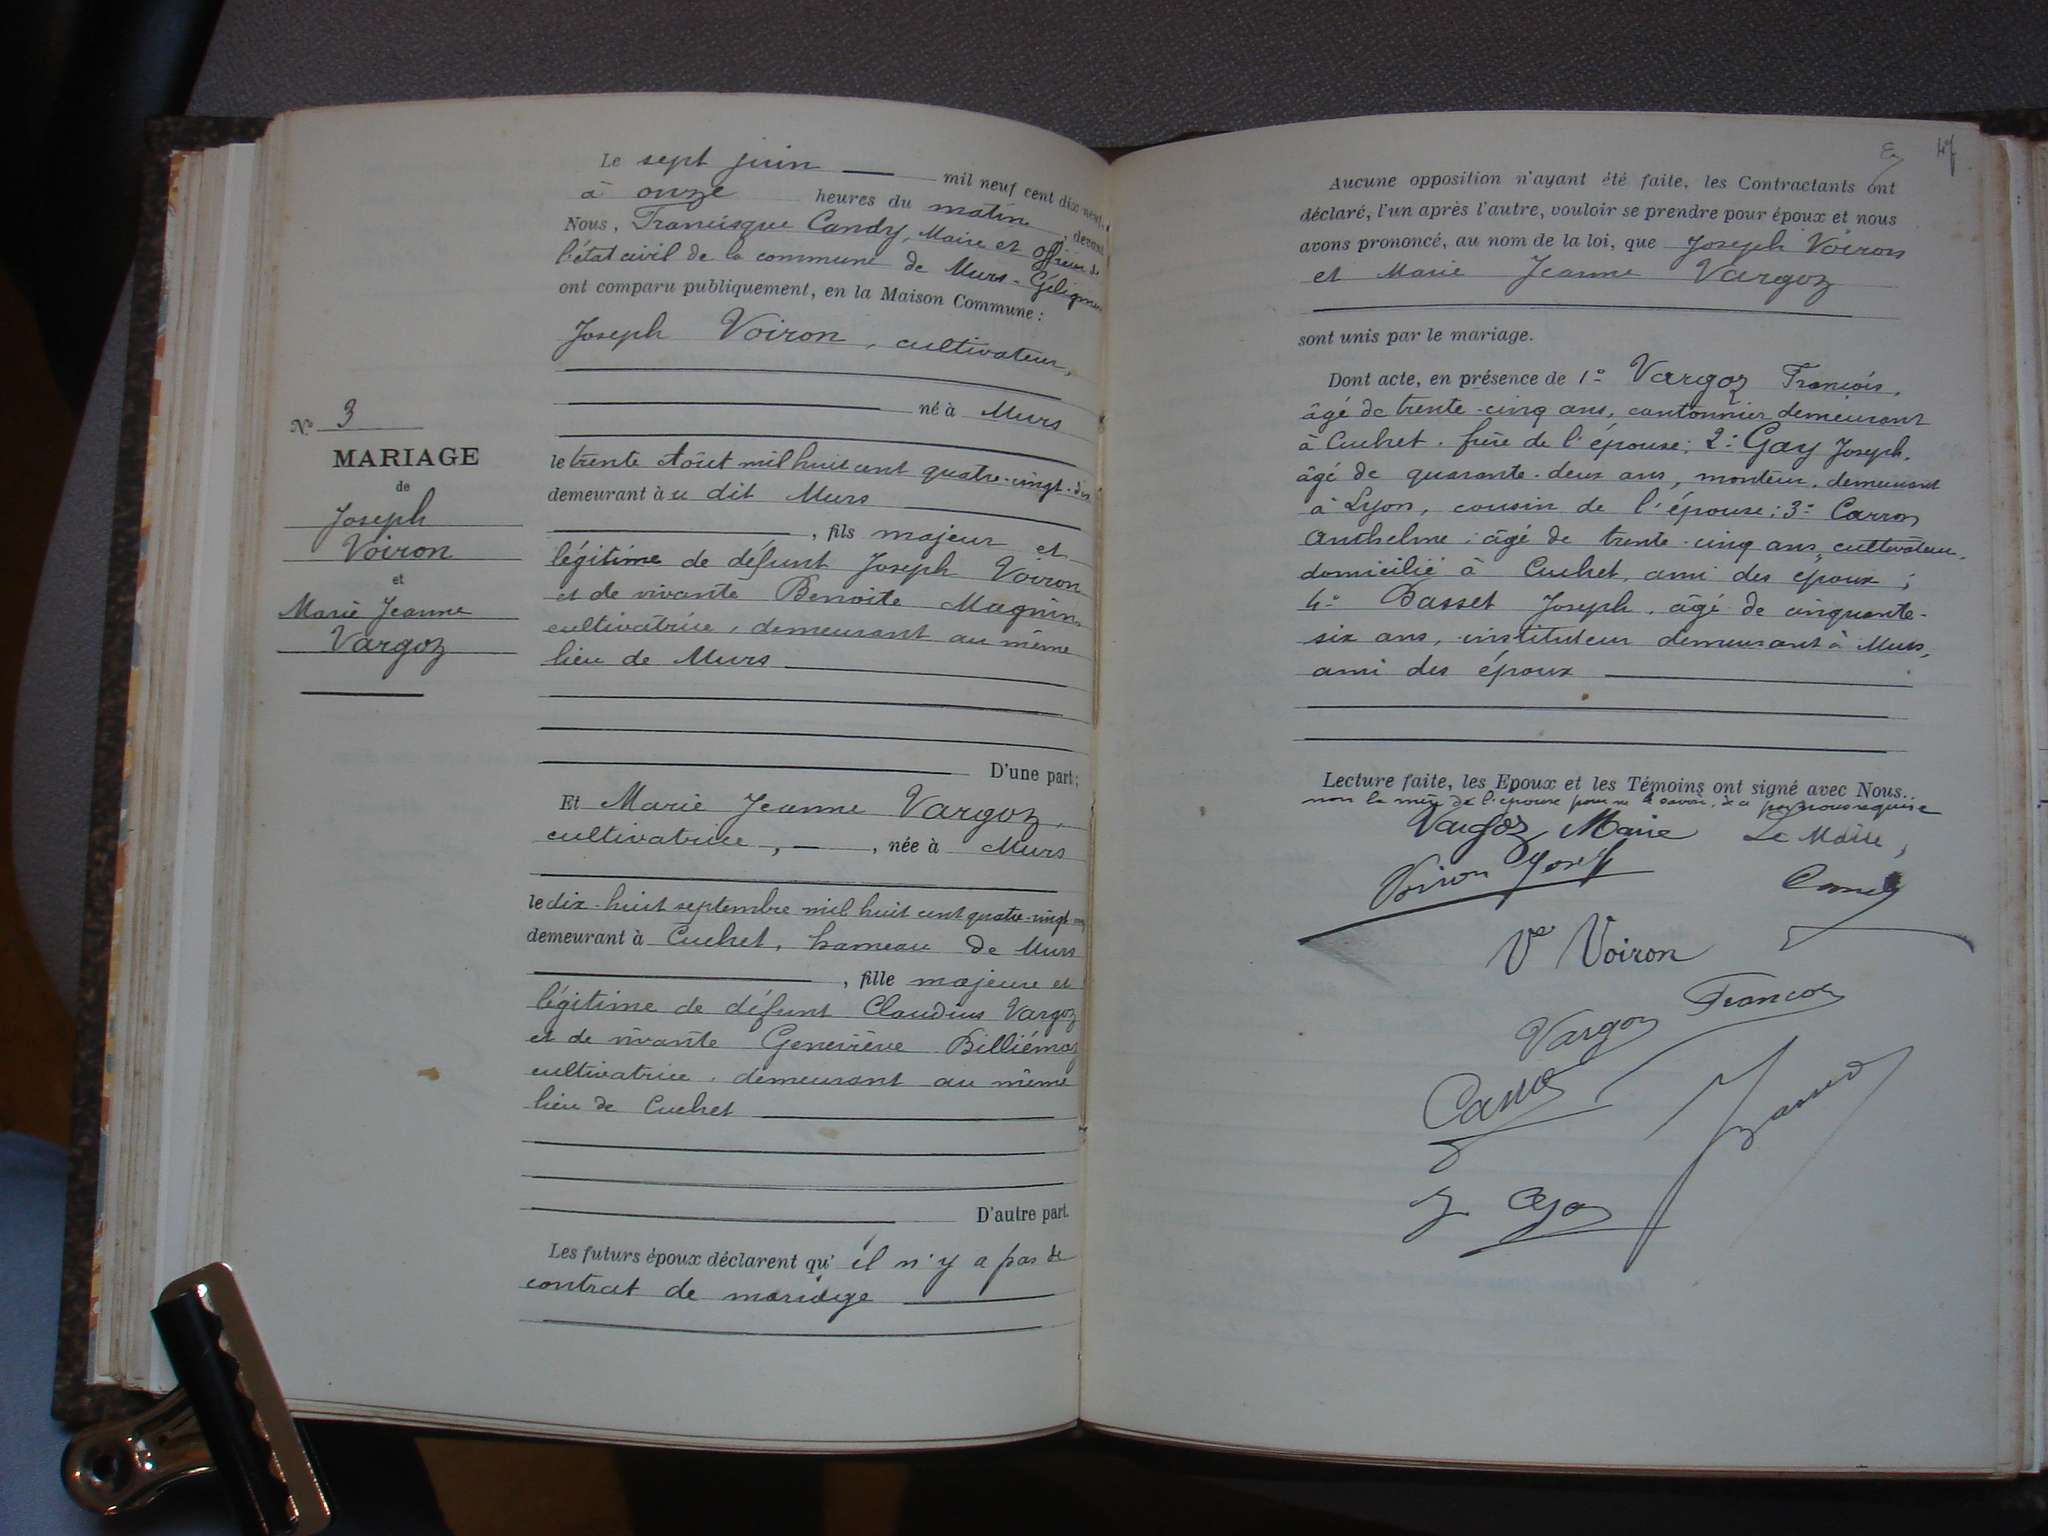 Le sept juin — mil neuf cent dix neuf,
à onze heures du matin, devant
Nous, Francisque Candy, Maire et officier de
l'état civil de la commune de Murs-Gélignieux
ont comparu publiquement, en la Maison Commune :
Joseph Voiron, cultivateur,
né à Murs
le trente Août mil huit cent quatre-vingt-dix
demeurant à u dit Murs
, fils majeur et
légitime de défunt Joseph Voiron
et de vivante Benoite Magnin,
cultivatrice, demeurant au même
lieu de Murs
D'une part;
Et Marie Jeanne Vargoz,
cultivatrice, —, née à Murs
le dix-huit septembre mil huit cent quatre-vingt
demeurant à Cuchet, hameau de Murs
, fille majeure et
légitime de défunt Claudius Vargoz
et de vivante Geneviève Billiémaz
cultivatrice, demeurant au même
lieu de Cuchet
D'autre part.
Les futurs époux déclarent qu' il n'y a pas de
contrat de mariage
N° 3
MARIAGE
de
Joseph
Voiron
et
Marie Jeanne
Vargoz
47
Aucune opposition n'ayant été faite, les Contractants ont
déclaré, l'un après l'autre, vouloir se prendre pour époux et nous
avons prononcé, au nom de la loi, que Joseph Voiron
et Marie Jeanne Vargoz
sont unis par le mariage.
Dont acte, en présence de 1° Vargoz François,
âgé de trente-cinq ans, cantonnier demeurant
à Cuchet, frère de l'épouse; 2° Gay Joseph,
âgé de quarante-deux ans, monteur, demeurant
à Lyon, cousin de l'épouse; 3° Carron
Anthelme, âgé de trente-cinq ans, cultivateur,
domicilié à Cuchet, ami des époux;
4° Basset Joseph, âgé de cinquante-
six ans, instituteur demeurant à Murs,
ami des époux
Lecture faite, les Epoux et les Témoins ont signé avec Nous.
non la mère de l'épouse pour ne le savoir, de ce par nous requise
Vargoz Marie Le Maire,
Voiron Joseph Candy
Vve Voiron
Vargoz François
J. Gay